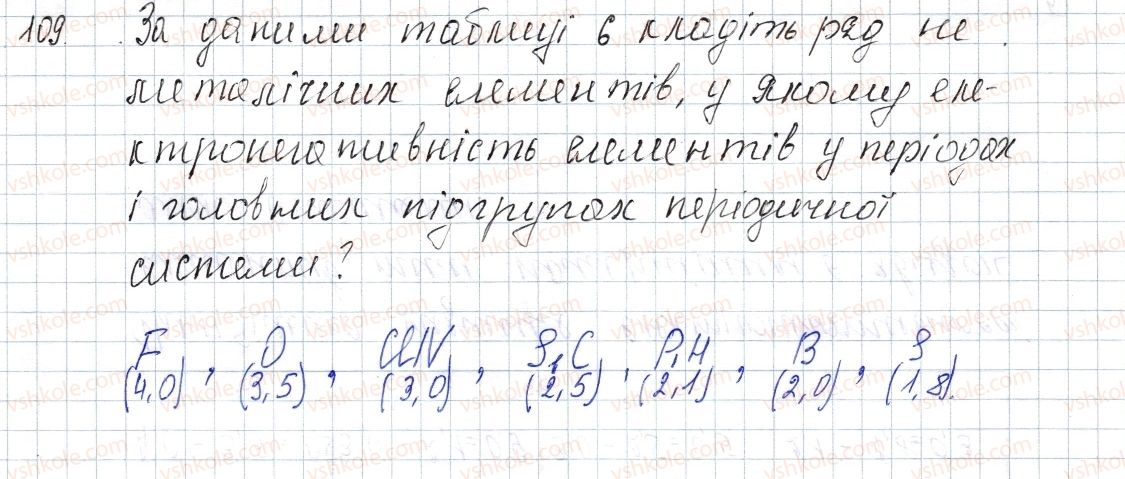 109. За даними таблиці 6 кладіть ряд не
металічних елементів, у якому еле-
ктронегативність елементів у періодах
і головних підгрупах періодичної
системи?
F , O , Cl,N , S,C , P,H , B , S
(4,0) (3,5) (3,0) (2,5) (2,1) (2,0) (1,8).